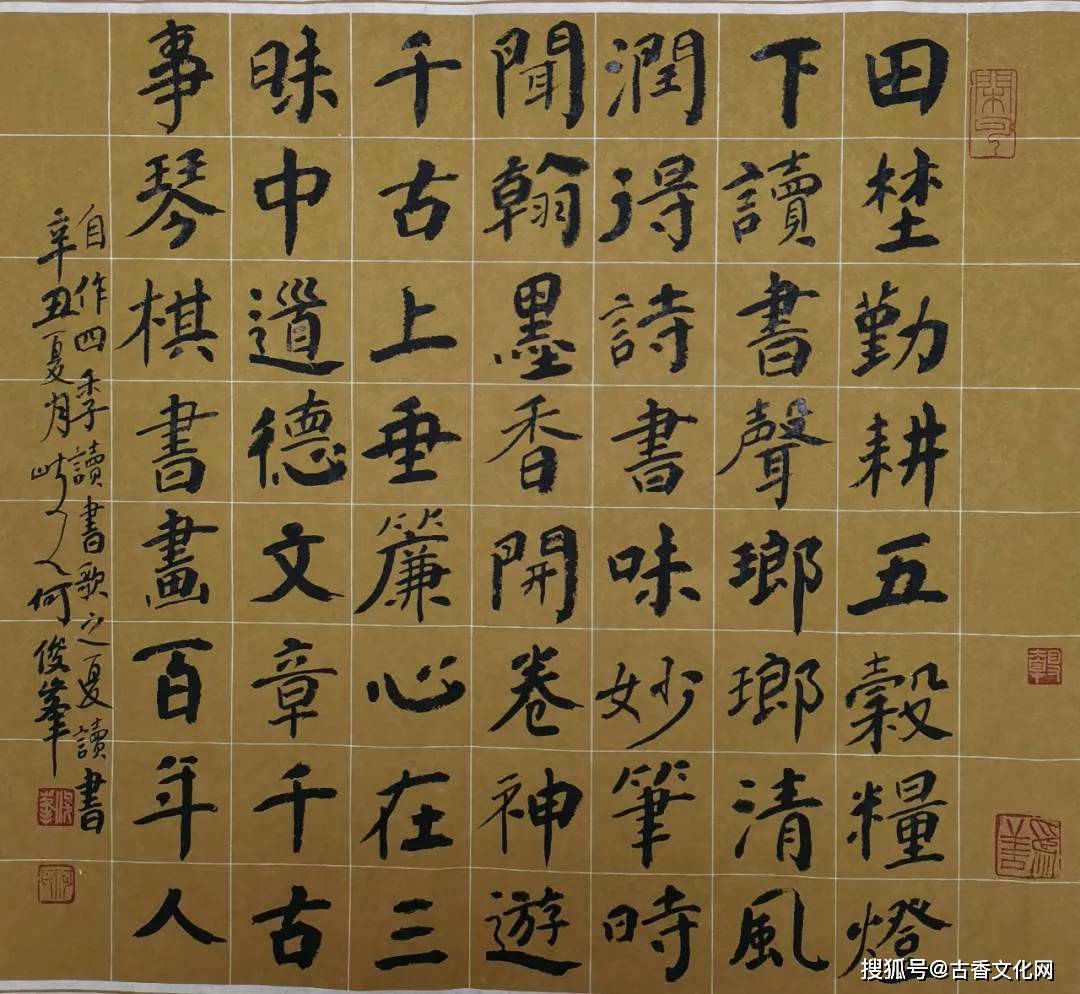 田埜勤耕五穀糧燈
下讀書聲瑯瑯清風
潤得詩書味妙筆時
聞翰墨香開卷神遊
千古上垂簾心在三
昧中道德文章千古
事琴棋書畫百年人
自作四季讀書歌之夏讀書
辛丑夏月 人何俊峯
搜狐号@古香文化网